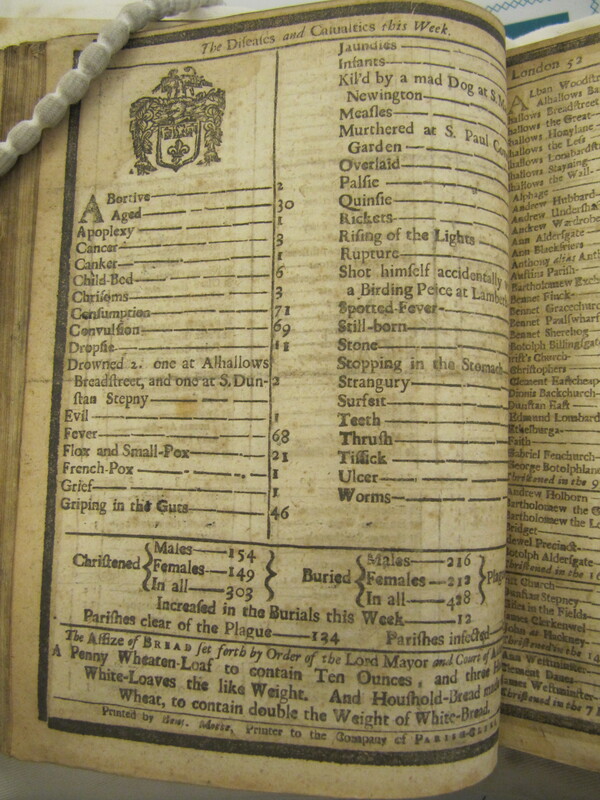 The Diseases and Casualties this Week.
Abortive 2
Aged 30
Apoplexy 1
Cancer 3
Canker 1
Child-Bed 6
Chrisoms 3
Consumption 71
Convulsion 69
Dropsie 11
Drowned 2. one at Alhallows
Breadstreet, and one at S. Dun- 2
stan Stepny
Evil 1
Fever 68
Flox and Small-Pox 21
French-Pox 1
Grief 1
Griping in the Guts 46
Jaundies
Infants
Kil'd by a mad Dog at S. M
Newington
Measles
Murthered at S. Paul Co
Garden
Overlaid
Palsie
Quinsie
Rickets
Rising of the Lights
Rupture
Shot himself accidentally
a Birding Peice at Lambe
Spotted-Fever
Still-born
Stone
Stopping in the Stomach
Strangury
Surfeit
Teeth
Thrush
Tissick
Ulcer
Worms
Christened Males 154
Females 149
In all 303
Buried Males 216
Females 212
In all 428
Plag
Increased in the Burials this Week 12
Parishes clear of the Plague 134 Parishes infected
The Assize of BREAD set forth by Order of the Lord Mayor and Court of A
A Penny Wheaten-Loaf to contain Ten Ounces, and three H
White-Loaves the like Weight. And Houshold-Bread made
Wheat, to contain double the Weight of White-Bread.
Printed by Motte, Printer to the Company of PARISH-CLERKS
London 52
Alban Woodstr
Alhallows Ba
hallows Breadstreet
hallows the Great
hallows Honylane
hallows the Less
hallows Lombardst
hallows Stayning
hallows the Wall
Alphage
Andrew Hubbard
Andrew Undersha
Andrew Wardrobe
Ann Aldersgate
Ann Blackfriers
Anthony alias Anti
Austins Parish
Bartholomew Exch
Bennet Finck
Bennet Gracechur
Bennet Paulswharf
Bennet Sherehog
Botolph Billingsgat
rist's Church
Christophers
Clement Eastcheap
Dionis Backchurch
Dunstan East
Edmund Lombard
Ethelburga
Faith
Gabriel Fenchurch
George Botolphlane
Christened in the 9
Andrew Holborn
Bartholomew the G
Bartholomew the Le
Bridget
dewel Precinct
otolph Aldersgate
Christened in the 16
Church
Dunstan Stepney
Giles in the Fields
James Clerkenwel
John at Hackney
Christened in the 14
Ann Westminster
Clement Danes
James Westminster
Christened in the 7